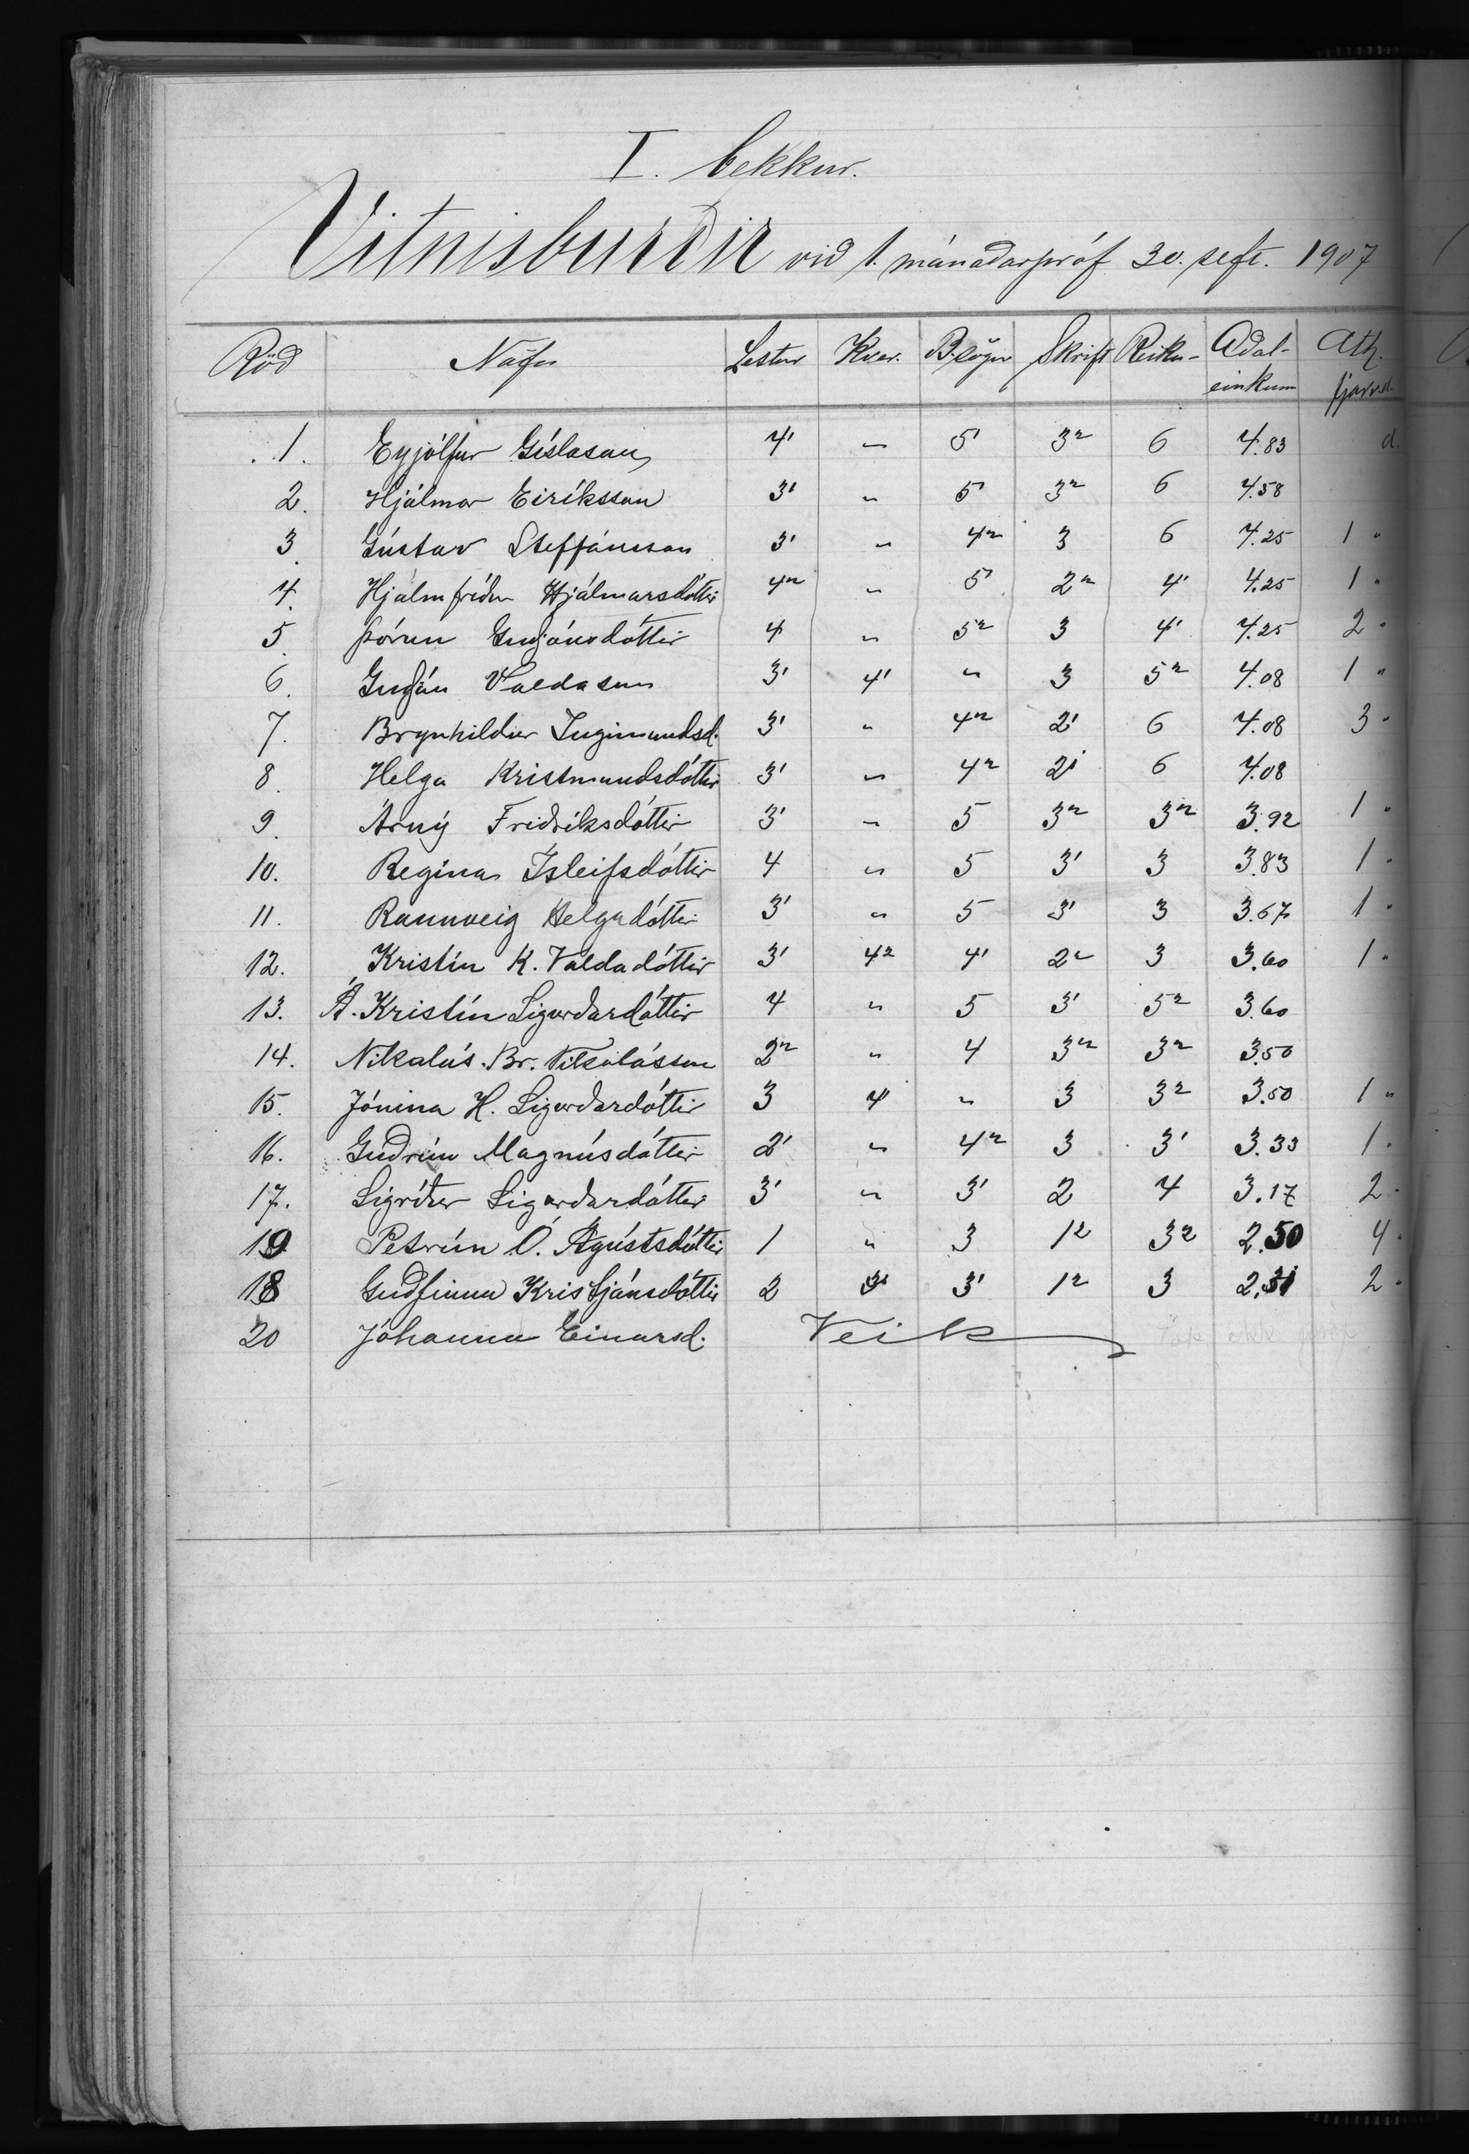 I. bekkur.
Vitnisburðir við 1. mánaðarpróf 30. sept. 1907
Röð Nöfn Lestur Kver. B.sögur Skrift Reikn- Aðal-einkunn Ath. fjarv.d.
1. Eyjólfur Gíslason 4' " 5' 3² 6 4.83 d.
2. Hjálmar Eiríksson 3' " 5' 3² 6 4.58
3. Gústav Steffánsson 3' " 4² 3 6 4.25 1 "
4. Hjálmfríður Hjálmarsdóttir 4² " 5' 2² 4' 4.25 1 "
5. Þórun Guðjónsdóttir 4 " 5² 3 4' 4.25 2 "
6. Guðjón Valdason 3' 4' " 3 5² 4.08 1 "
7. Brynhildur Ingimundsd. 3' " 4² 2' 6 4.08 3 "
8. Helga Kristmundsdóttir 3' " 4² 2' 6 4.08
9. Árný Friðriksdóttir 3' " 5 3² 3² 3.92 1 "
10. Regína Ísleifsdóttir 4 " 5 3' 3 3.83 1 "
11. Rannveig Helgadóttir 3' " 5 3' 3 3.67 1 "
12. Kristín K. Valdadóttir 3' 4² 4' 2² 3 3.60 1 "
13. Á. Kristín Sigurðardóttir 4 " 5 3' 5² 3.60
14. Nikalás Br. Nikolásson 2² " 4 3² 3² 3.50
15. Jónína H. Sigurðardóttir 3 4' " 3 3² 3.50 1 "
16. Guðrún Magnúsdóttir 2' " 4² 3 3' 3.33 1 "
17. Sigríður Sigurðardóttir 3' " 3' 2 4 3.17 2 "
19 Petrún Ó. Ágústsdóttir 1 " 3 1² 3² 2.50 4 "
18 Guðfinna Kristjánsdóttir 2 3' 1² 3 2 "
20 Jóhanna Einarsd. Veik